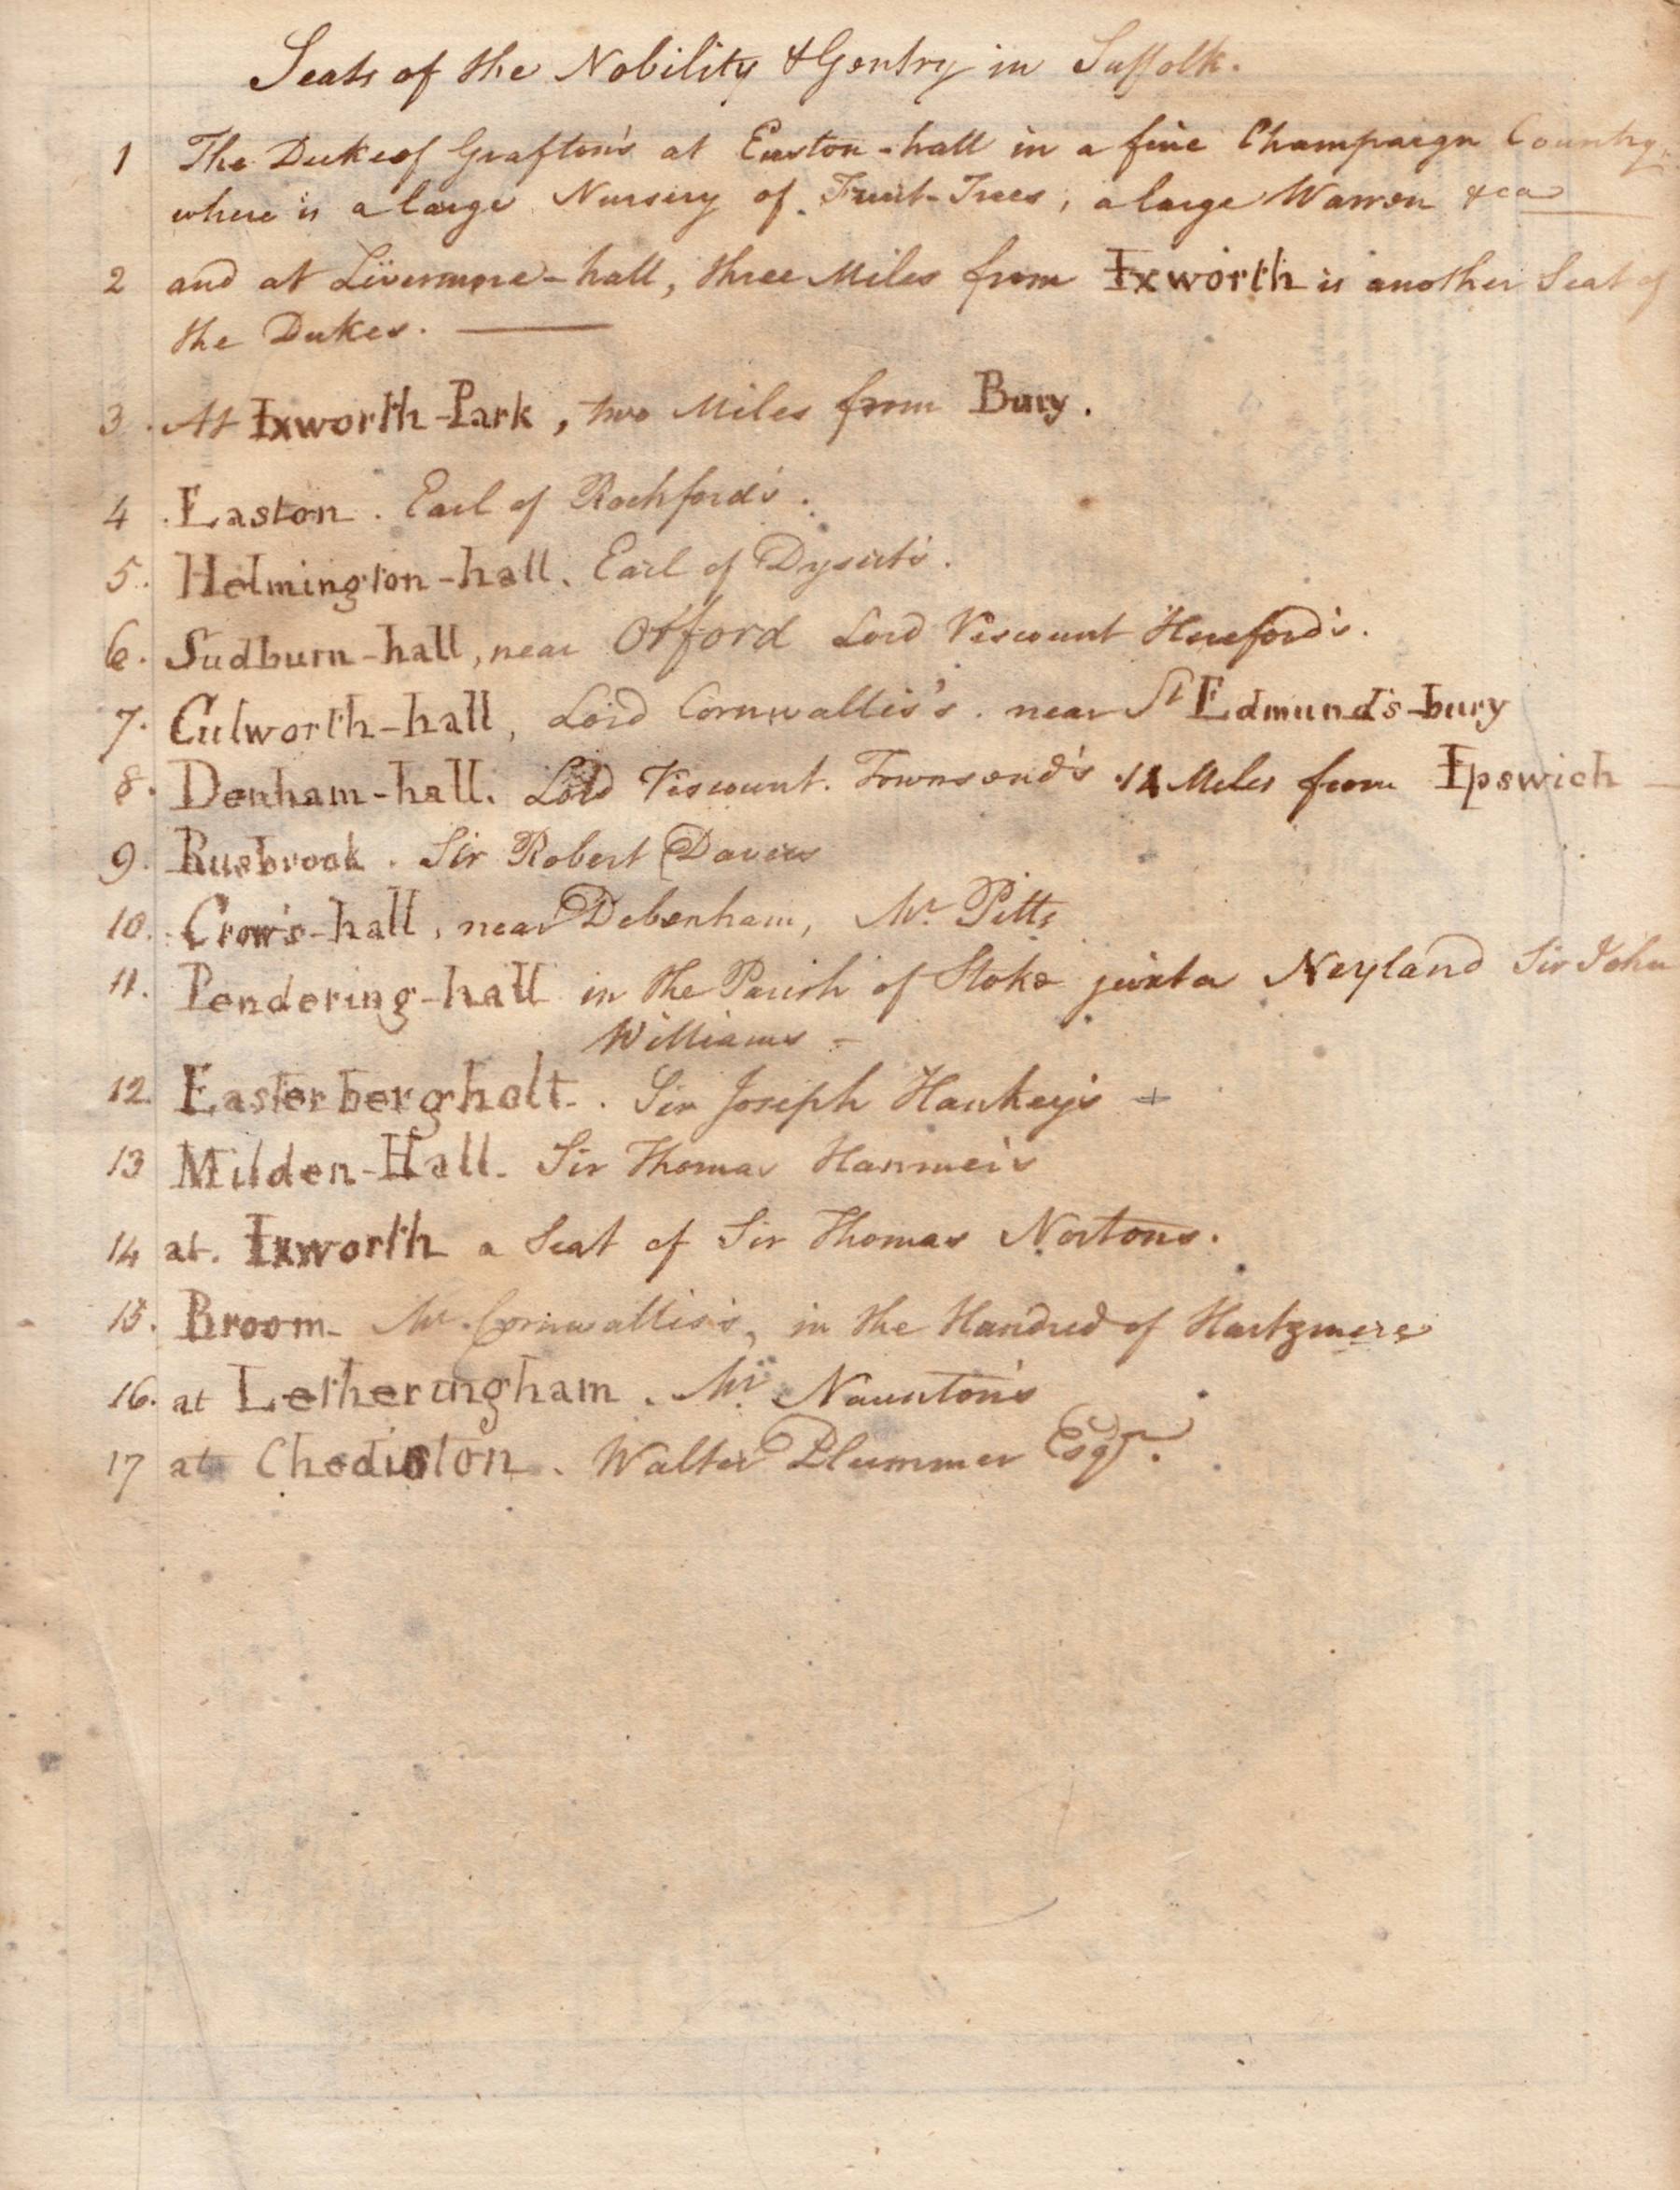 Seats of the Nobility & Gentry in Suffolk.
1 The Duke of Grafton's at Euston-hall in a fine Champaign Country,
where is a large Nursery of Fruit-Trees, a large Warren &ca
2 and at Livermore-hall, three Miles from Ixworth is another Seat of
the Dukes.
3. At Ixworth-Park, two Miles from Bury.
4. Easton. Earl of Rochford's.
5. Helmington-hall. Earl of Dysert's.
6. Sudburn-hall, near Orford Lord Viscount Hereford's.
7. Culworth-hall, Lord Cornwallis's. near St Edmund's-bury
8. Denham-hall. Lord Viscount. Townsend's 14 Miles from Ipswich
9. Rusbrook. Sir Robert Davers
10. Crow's-hall, near Debenham, Mr Pitts
11. Pendering-hall in the Parish of Stoke juxta Neyland Sir John
Williams
12. Easterbergholt. Sir Joseph Hankey's
13 Milden-Hall. Sir Thomas Hanmer's
14 at. Ixworth a Seat of Sir Thomas Nortons.
15. Broom- Mr. Cornwallis's, in the Hundred of Hartzmere
16. at Letheringham. Mr. Naunton's
17 at Chediston. Walter Plummer Esqr.